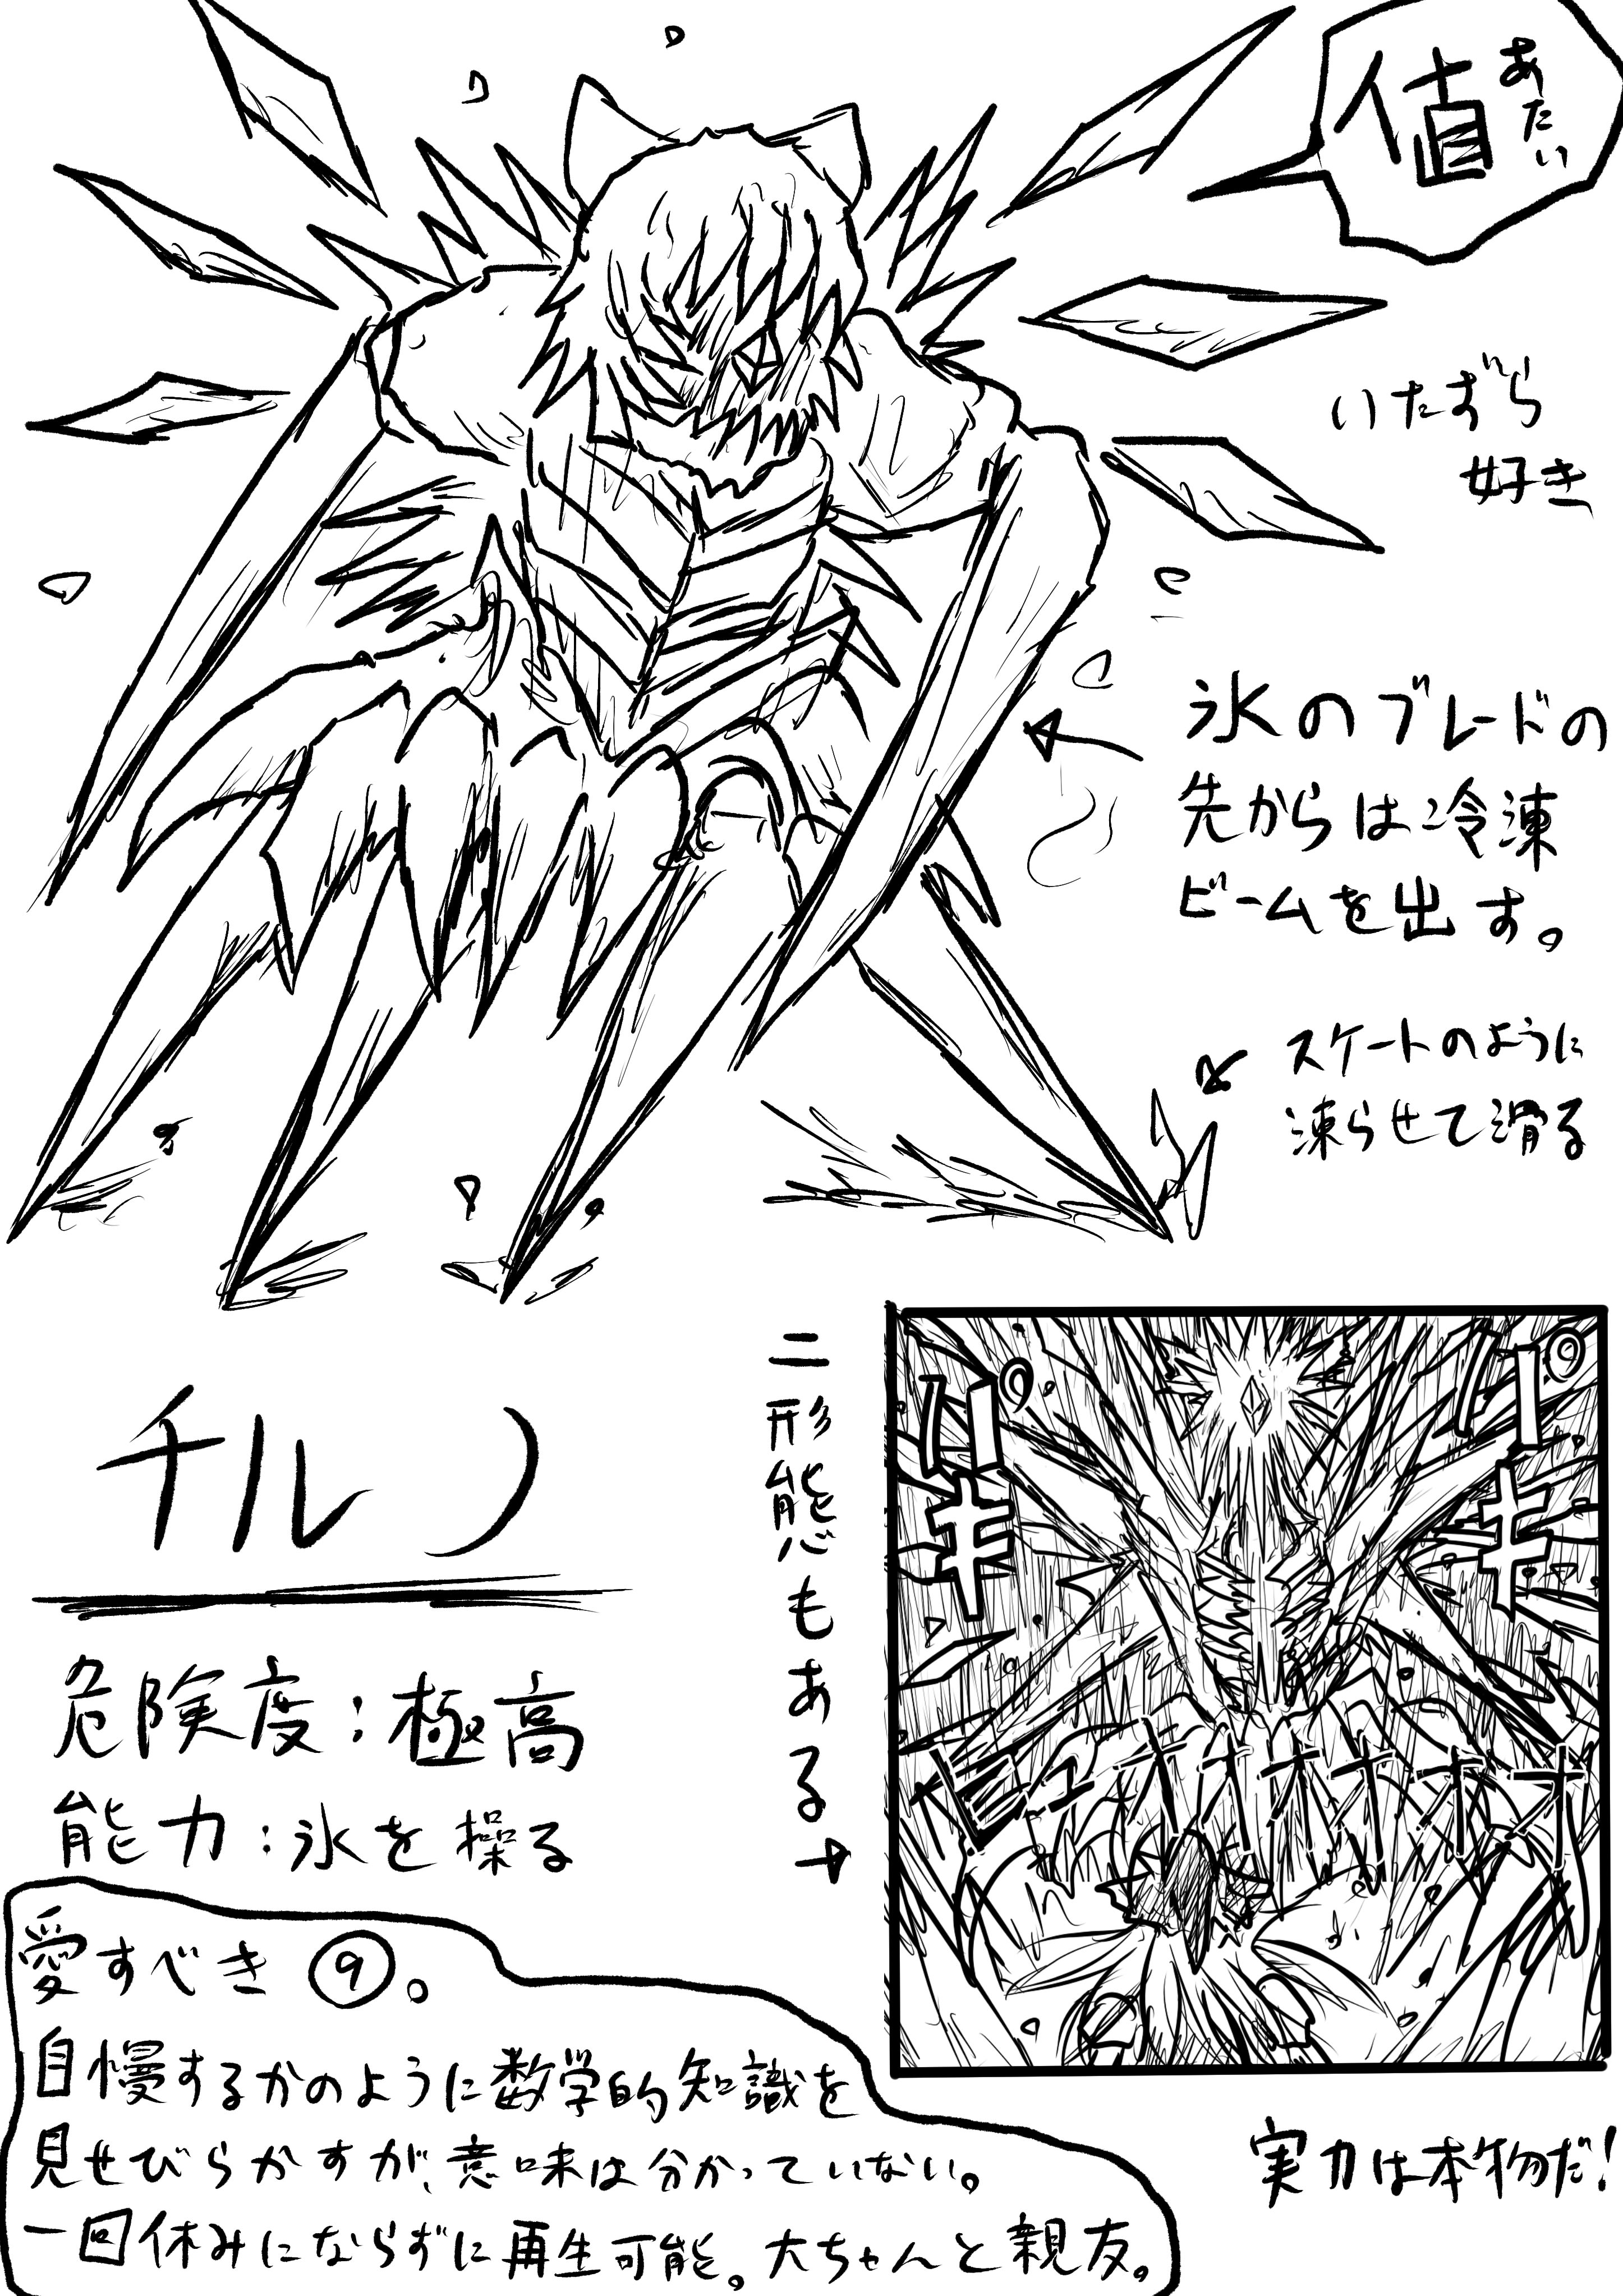 値
あたい
いたずら
好き
氷のブレードの
先からは冷凍
ビームを出す。
スケートのように
凍らせて滑る
チルノ
危険度：極高
能力：氷を操る
二形態もある→
パキ
パキ
ヒュオオオオオオ
愛すべき⑨。
自慢するかのように数学的知識を
見せびらかすが、意味は分かっていない。
一回休みにならずに再生可能。大ちゃんと親友。
実力は本物だ！